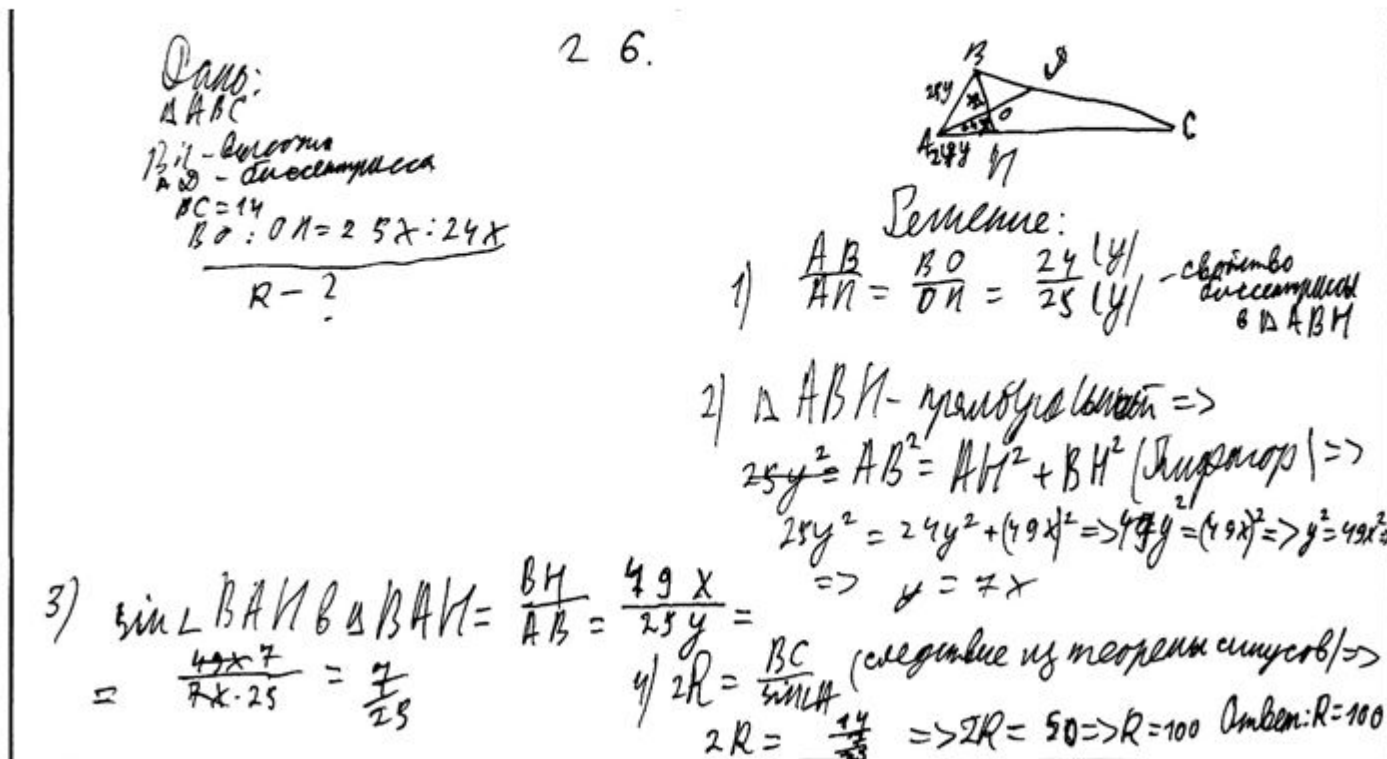 26.
Дано:
△ABC
BH - высота
AD - биссектрисса
BC = 14
BO : OH = 25x : 24x
R - ?
B
D
25y
25x
O
24x
A
24y
H
C
Решение:
1) AB/AH = BO/OH = 24(y)/25(y) - свойство биссектрисы в △ABH
2) △ABH - прямоугольный =>
25y² = AB² = AH² + BH² (Пифагор) =>
25y² = 24y² + (49x)² => 49y² = (49x)² => y² = 49x² =>
=> y = 7x
3) sin∠BAH в △BAH = BH/AB = 49x/25y =
= 49x 7/7x · 25 = 7/25
4) 2R = BC/sin∠A (следствие из теоремы синусов) =>
2R = 14/(7/25) => 2R = 50 => R = 100 Ответ: R = 100